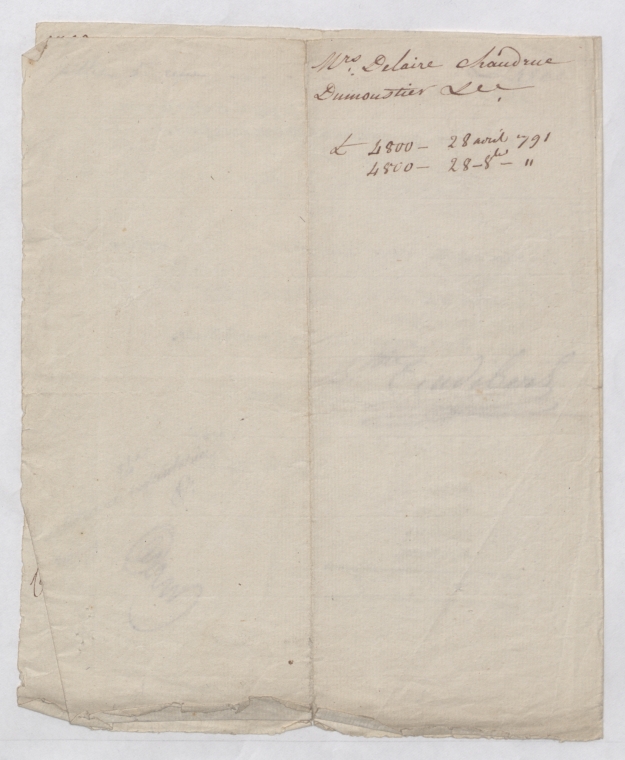 Mrs. Delaire Chaudrue
Dumoustier &cc.
£ 4800 — 28 avril 791
4800 — 28 — 8bre — "